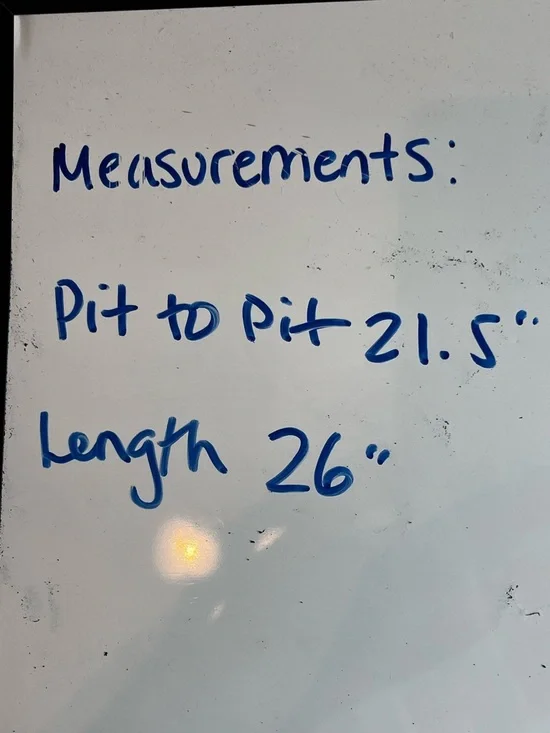 Measurements:
Pit to Pit 21.5"
Length 26"